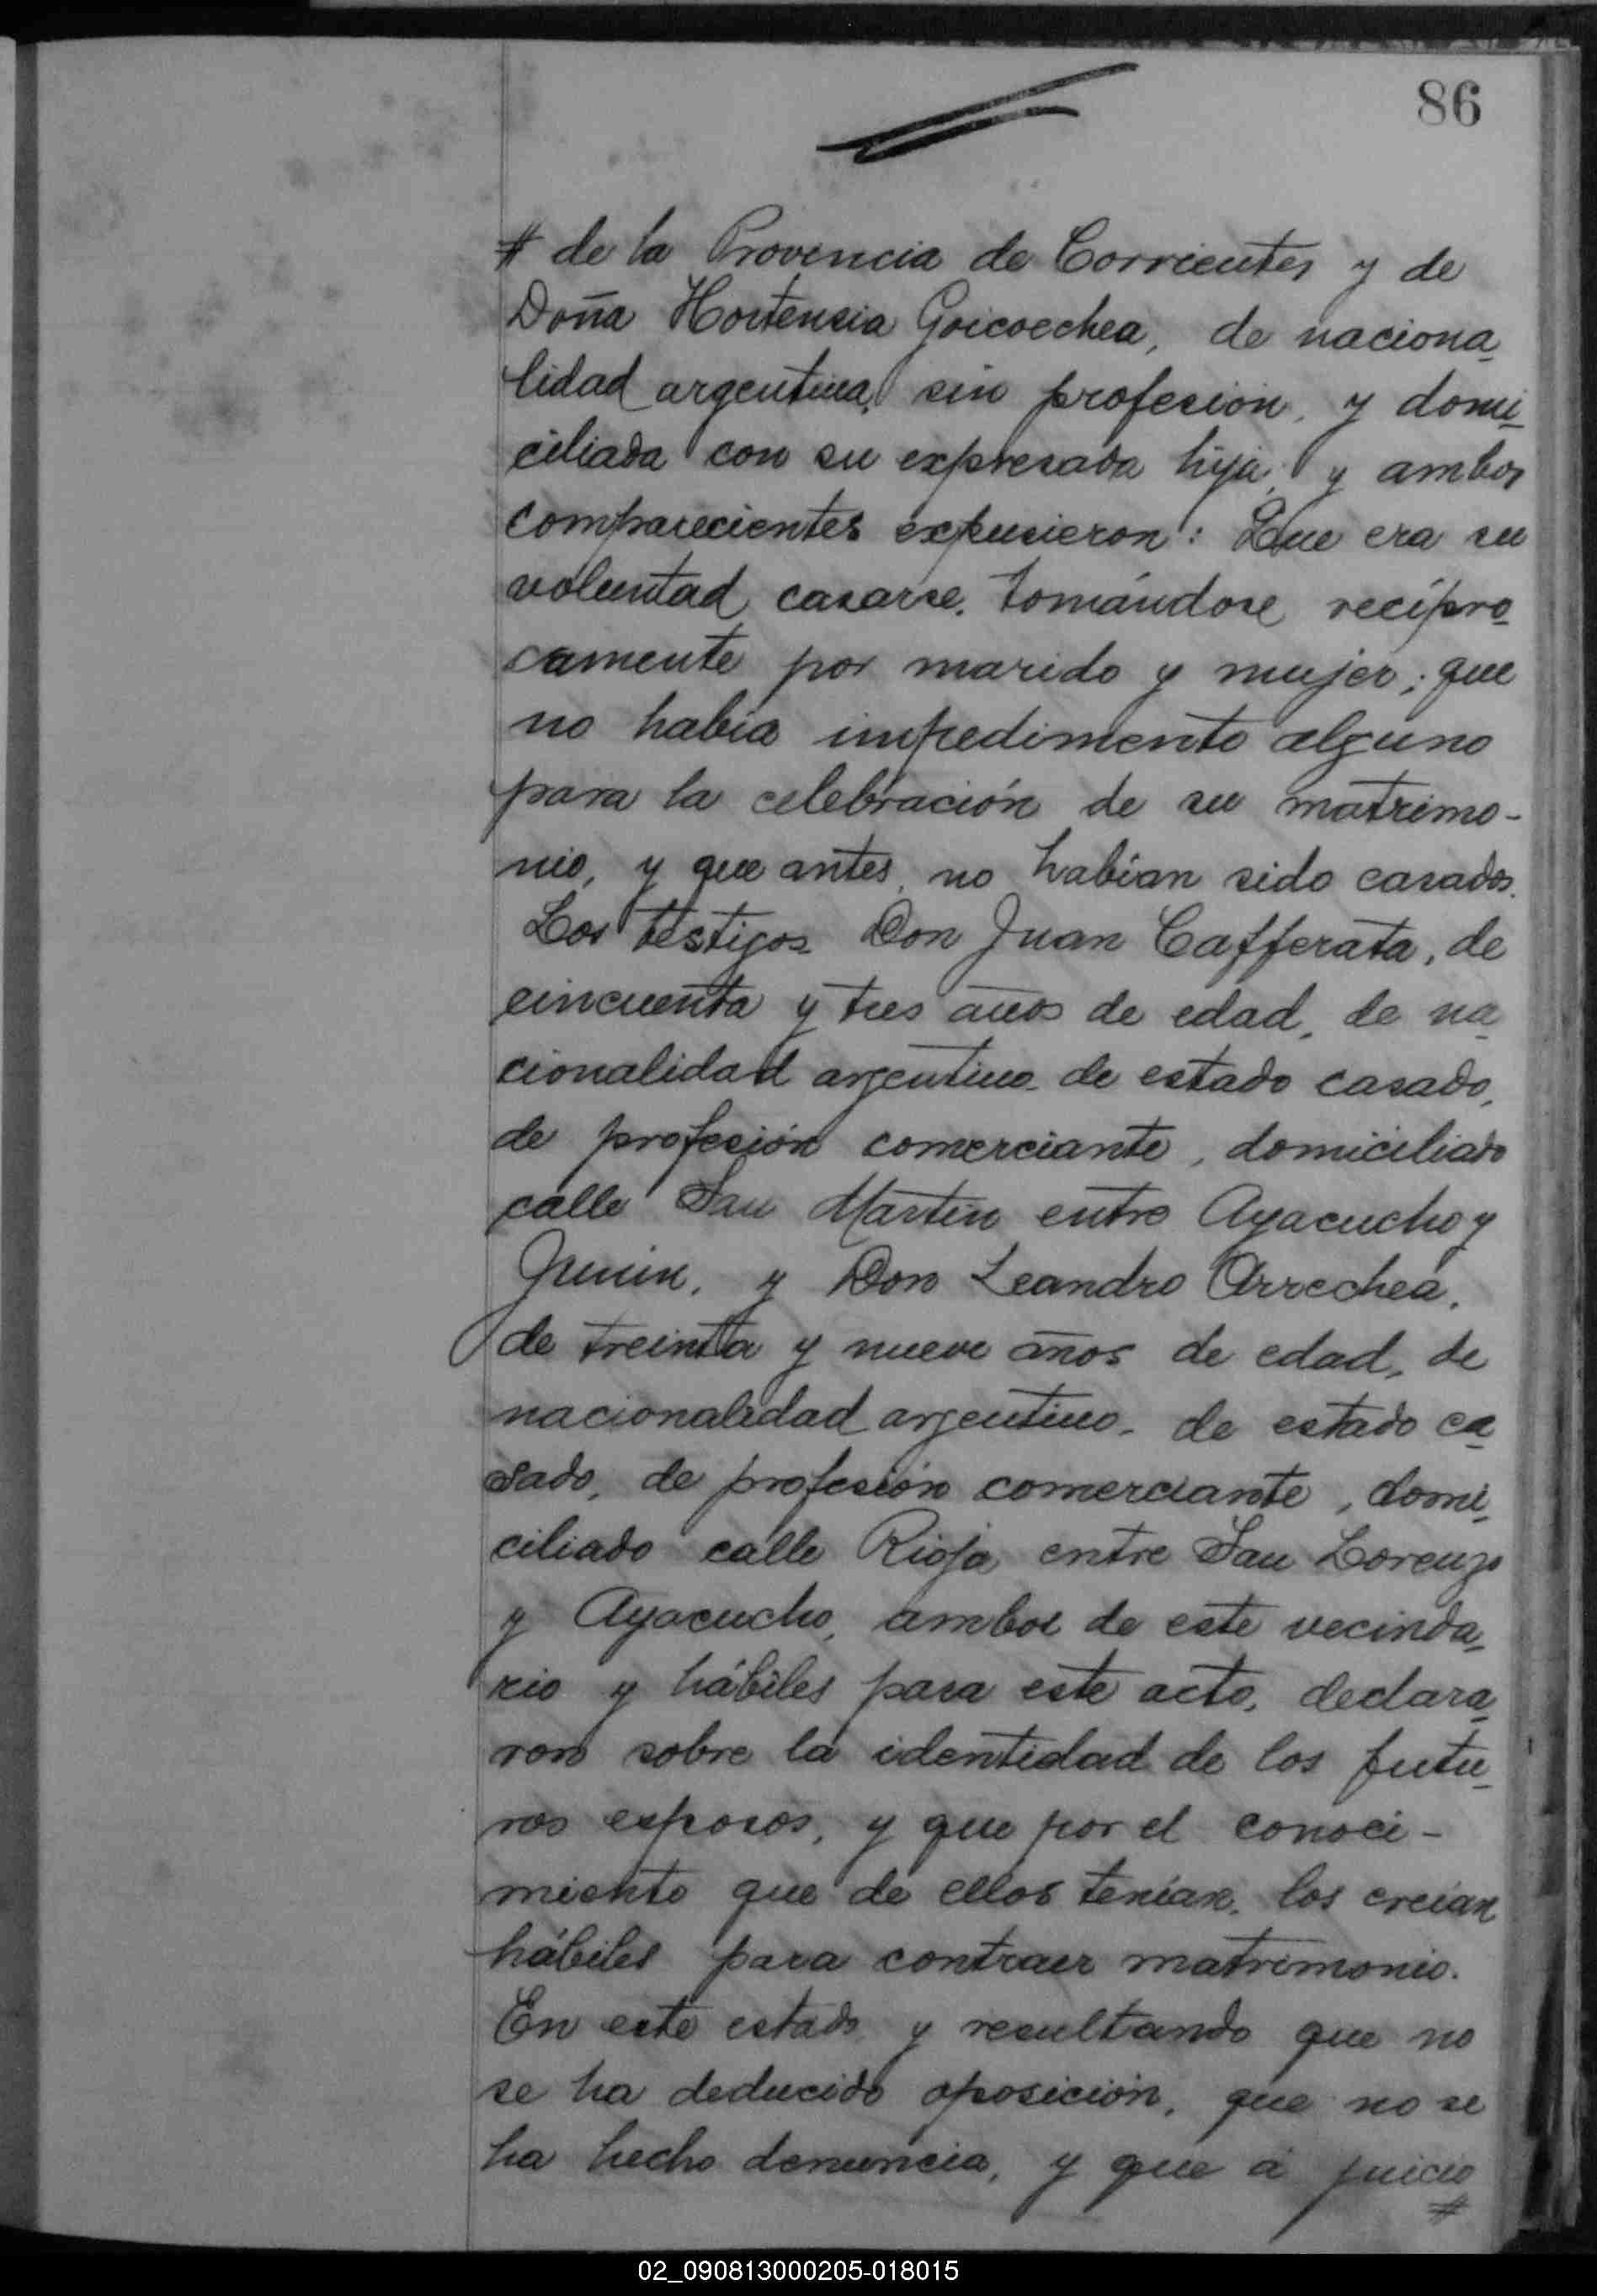 86
# de la Provincia de Corrientes y de
Doña Hortensia Goicoechea, de naciona_
lidad argentina, sin profesion, y domi_
ciliada con su expresada hija, y ambos
comparecientes expusieron: Que era su
voluntad casarse, tomándose recípro_
camente por marido y mujer; que
no había impedimento alguno
para la celebración de su matrimo-
nio, y que antes no habían sido casados.
Los testigos Don Juan Cafferata, de
cincuenta y tres años de edad, de na_
cionalidad argentino de estado casado,
de profesión comerciante, domiciliado
calle San Martin entre Ayacucho y
Junin, y Don Leandro Arrechea,
de treinta y nueve años de edad, de
nacionalidad argentino, de estado ca_
sado, de profesión comerciante, domi_
ciliado calle Rioja entre San Lorenzo
y Ayacucho, ambos de este vecinda_
rio y hábiles para este acto, declara_
ron sobre la identidad de los futu_
ros esposos, y que por el conoci-
miento que de ellos tenían, los creían
hábiles para contraer matrimonio.
En este estado y resultando que no
se ha deducido oposición, que no se
ha hecho denuncia, y que á juicio
#
02_090813000205-018015